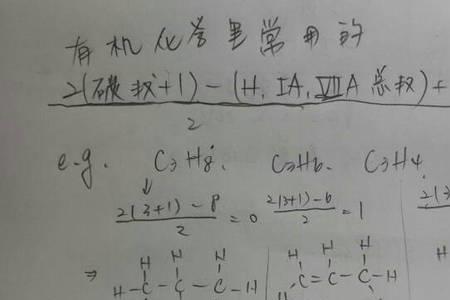 有机化学里常用的
2(碳数+1)-(H, IA, ⅦA 总数)+
2
e.g. C3H8. C3H6. C3H4.
2(3+1)-8
2 =0 2(3+1)-6
2 =1 2(3
⇒ H H H H H H H
H-C-C-C-H C=C-C-